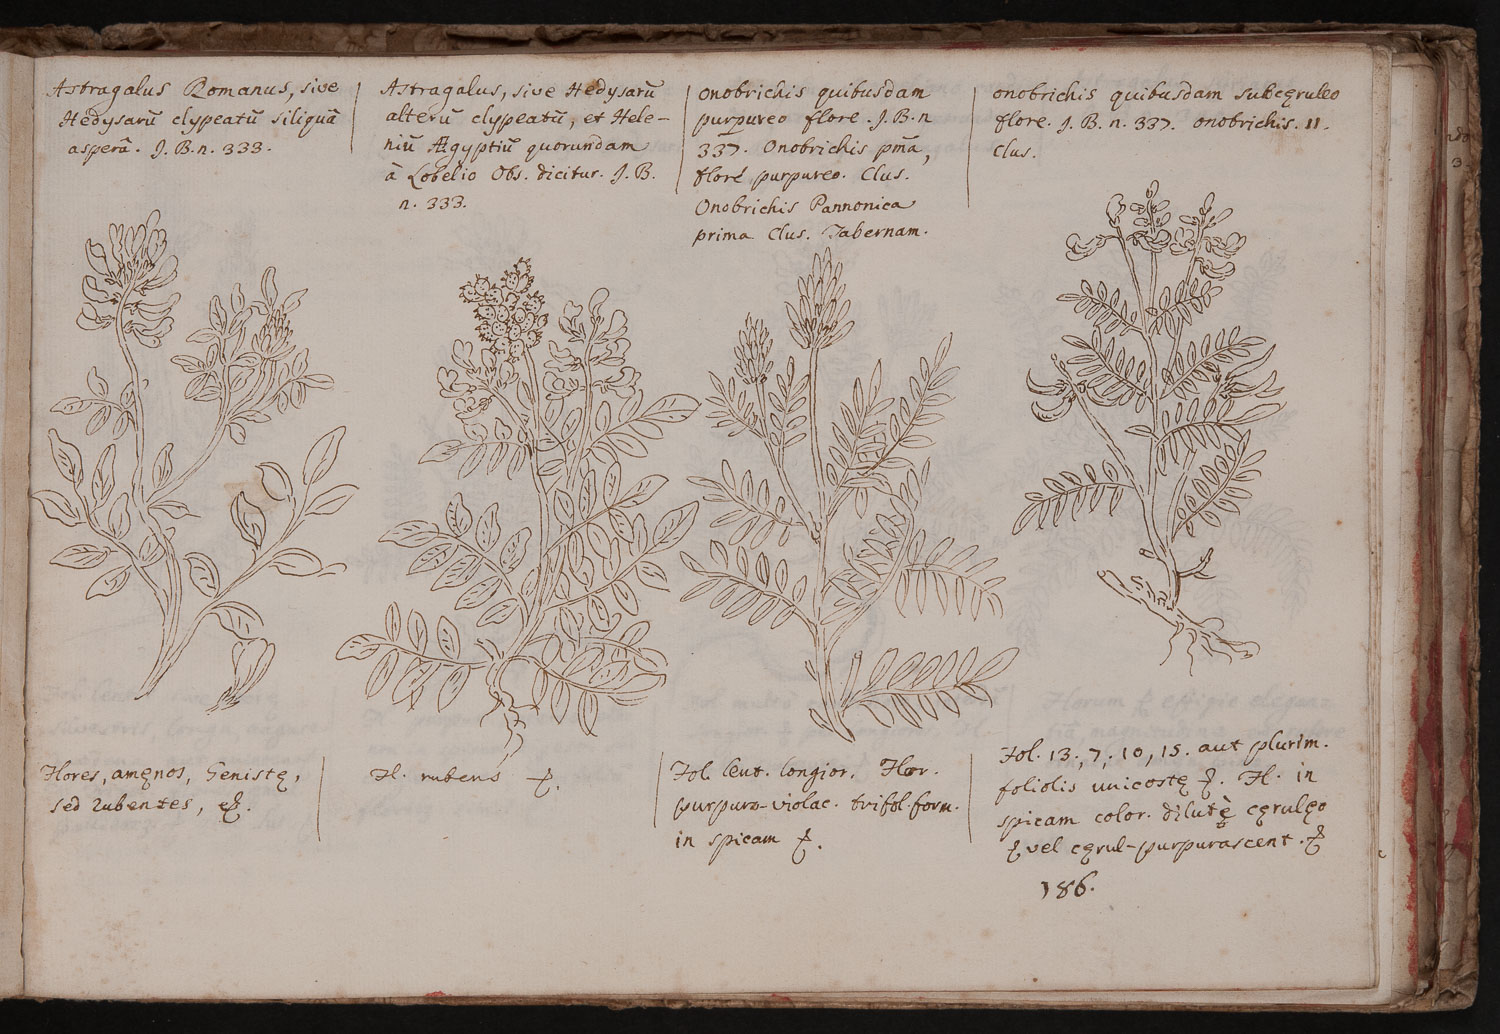 Astragalus Romanus, sive
Hedysarū clypeatū siliquâ
asperâ. J. B. n. 333.
Astragalus, sive Hedysarū
alterū clypeatū, et Hele-
niū Ægyptiū quorundam
à Lobelio Obs. dicitur. J. B.
n. 333.
onobrichis quibusdam
purpureo flore. J. B. n
337. Onobrichis pm̄a,
flore purpureo. Clus.
Onobrichis Pannonica
prima Clus. Tabernam.
onobrichis quibusdam subcęruleo
flore. J. B. n. 337. onobrichis. 11.
Clus.
Flores, amęnos, Genistę,
sed rubentes,
Fl. rubens
Fol. lent. longior. Flor.
purpuro-violac. trifol. form.
in spicam
Fol. 13, 7, 10, 15. aut plurim.
foliolis unicostę. Fl. in
spicam color. dilutè cęruleo
vel cęrul-purpurascent.
186.